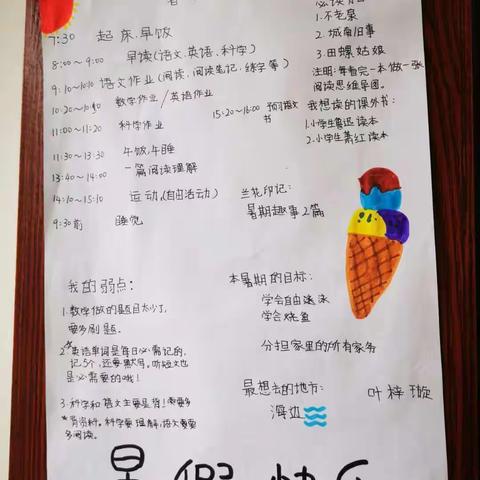 7:30 起床、早饭
8:00～9:00 早读(语文、英语、科学)
9:10～10:10 语文作业(阅读、阅读笔记、练字等)
10:20～10:50 数学作业/英语作业
11:00～11:20 科学作业
11:30～13:30 午饭,午睡
13:40～14:00 一篇阅读理解
14:10～15:10 运动(自由活动)
9:30前 睡觉
15:20～16:00 预习语文
书
1.不老泉
2.城南旧事
3.田螺姑娘
注明:每看完一本做一张
阅读思维导图。
我想读的课外书:
1.小学生鲁迅读本
2.小学生萧红读本
兰花印记:
暑期趣事2篇
我的弱点:
1.数学做的题目太少了,
要多刷题。
2.英语单词是每日必需记的,
记5个,还要默写。听短文也
是必需要的哦!
3.科学和语文主要是背!需要多
背资料。科学要理解,语文需要
多阅读。
本暑期的目标:
学会自由泳
学会烧鱼
分担家里的所有家务
最想去的地方:
海边
叶梓璇
暑假快乐